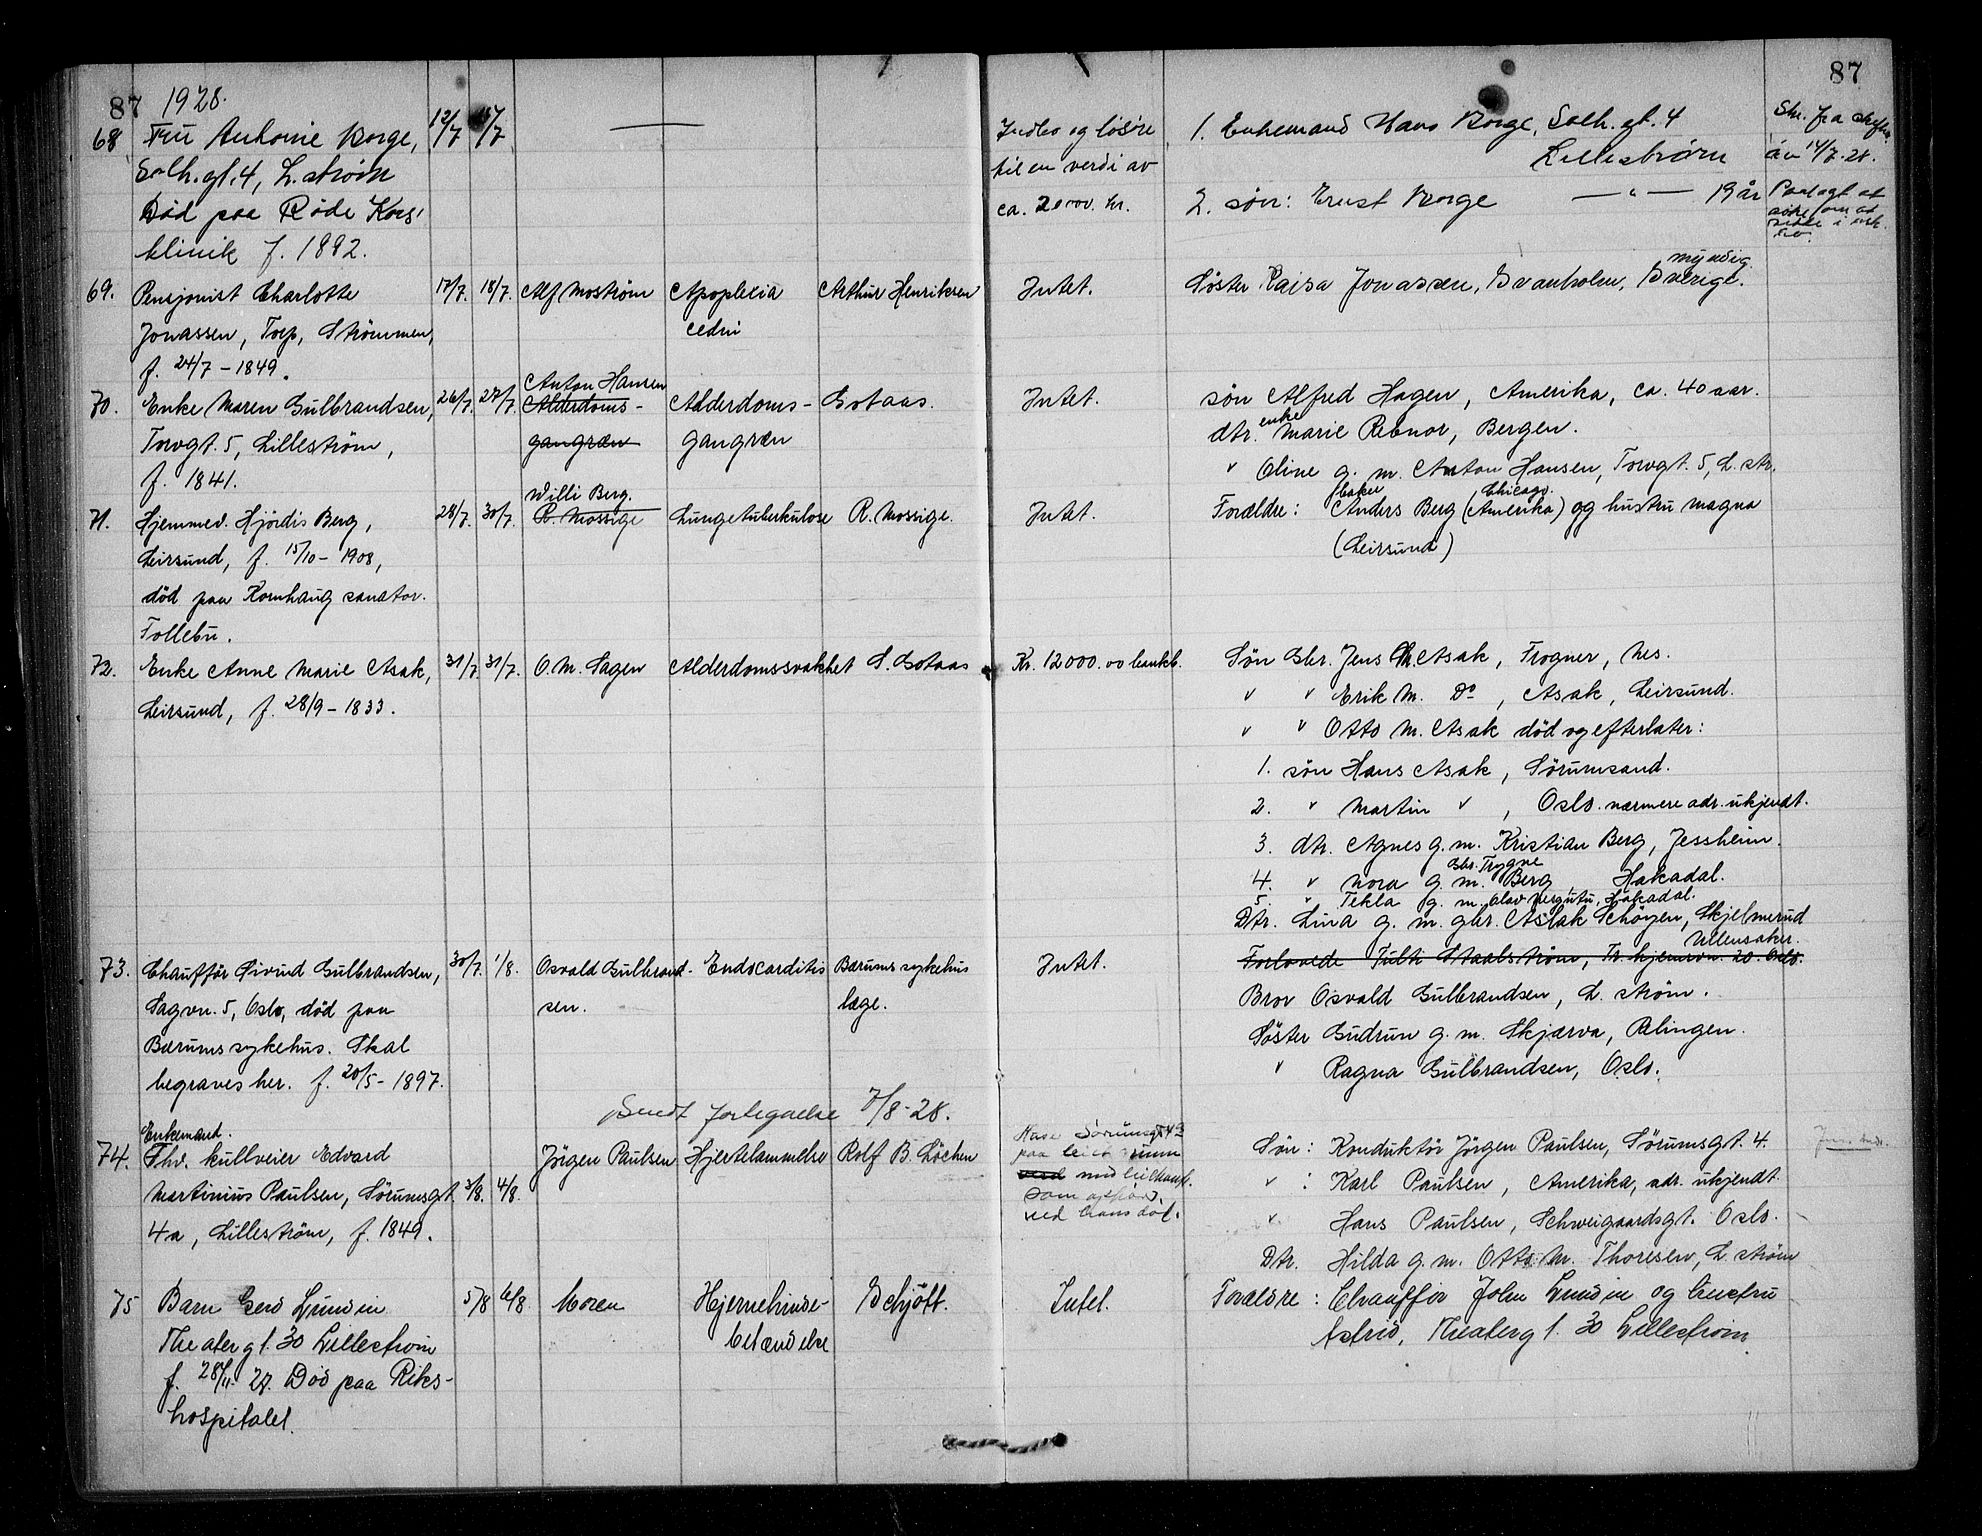 87 1928. 87
68 Fru Antonie Borge, 12/7 15/7 — Indbo og løsøre 1. Enkemand Hans Borge, Solh. gt. 4 Skr. fra
Solh. gt. 4, L. strøm til en verdi av Lillestrøm av 14/7-28.
Død paa Røde Kors' ca. 2000. kr. 2. søn: Ernst Borge — " — 19 år Paalagt at
klinik f. 1882. søke om at sidde i
myndig.
69. Pensjonist Charlotte 17/7. 18/7. Alf Moström Apoplexia Arthur Henriksen Intet. Søster Kaisa Jonassen, Svanholm, Sverige.
Jonassen, Torp, Strømmen,
f. 24/7 - 1849.
Anton Hansen
70. Enke Maren Gulbrandsen, 26/7. 27/7. Alderdoms- Alderdoms- Gotaas. Intet. søn Alfred Hagen, Amerika, ca. 40 aar.
Torvgt. 5, Lillestrøm, gangræn gangræn dtr. enke Marie Rebnor, Bergen.
f. 1841. " Oline g. m. Anton Hansen, Torvgt. 5, L. str.
Willi Berg. Chicago.
71. Hjemmev. Hjördis Berg, 28/7. 30/7. R. Mossige Lungetuberkulose R. Mossige. Intet. Forældre: Anders Berg (Amerika) og hustru Magna
Leirsund, f. 15/10 - 1908, (Leirsund)
död paa Kornhaug sanator.
Follebu.
72. Enke Anne Marie Asak, 31/7. 31/7. O. M. Hagen Alderdomssvakhet S. Gotaas Kr. 12000.00 bankb. Søn Gbr. Jens M. Asak, Frogner, Nes.
Leirsund, f. 28/9 - 1833. " " Erik M. Do, Asak, Leirsund.
" " Otto M. Asak död og efterlater:
1. søn Hans Asak, Sørumsand.
2. " Martin ", Oslo. nærmere adr. ukjendt.
3. dtr. Agnes g. m. Kristian Berg, Jessheim.
4. " Nora g. m. Gbr. Trygve Berg Hakadal.
5. " Tekla g. m. Olav Hakadal.
Dtr. Lina g. m. gbr. Aslak Schøyen, Skjelmerud
Ullensaker.
73. Chauffør Øivind Gulbrandsen, 30/7. 1/8. Osvald Gulbrand- Endocarditis Bærums sykehus Intet. Forlovede Staalstrøm, Tr. hjemsvn. 20. Oslo.
Sagvn. 5, Oslo, död paa sen. læge. Bror Osvald Gulbrandsen, L. strøm.
Bærums sykehus. Skal Søster Gudrun g. m. Skjærva, Rælingen.
begraves her. f. 20/5 - 1897. " Ragna Gulbrandsen, Oslo.
Sendt forlegnelse 7/8-28.
Enkemand.
74. Fhv. kullveier Edvard Jörgen Paulsen Hjertelammelse Rolf B. Løchen Søn: Konduktør Jörgen Paulsen, Sørumsgt. 4.
Martinius Paulsen, Sørumsgt. 3/8. 4/8. " : Karl Paulsen, Amerika, adr. ukjendt.
4a, Lillestrøm, f. 1849. ved hans død. " Hans Paulsen, Schweigaardsgt. Oslo.
Dtr. Hilda g. m. Otto M. Thoresen, L. strøm
75 Barn Gerd Lundin 5/8 6/8. Moren Hjernehinde- Schjøtt. Intet. Forældre: Chauffør John Lundin og hustru
Theatergt. 30 Lillestrøm betændelse Astrid, Theatergt. 30 Lillestrøm
f. 28/11 27. Død paa Riks-
hospitalet.